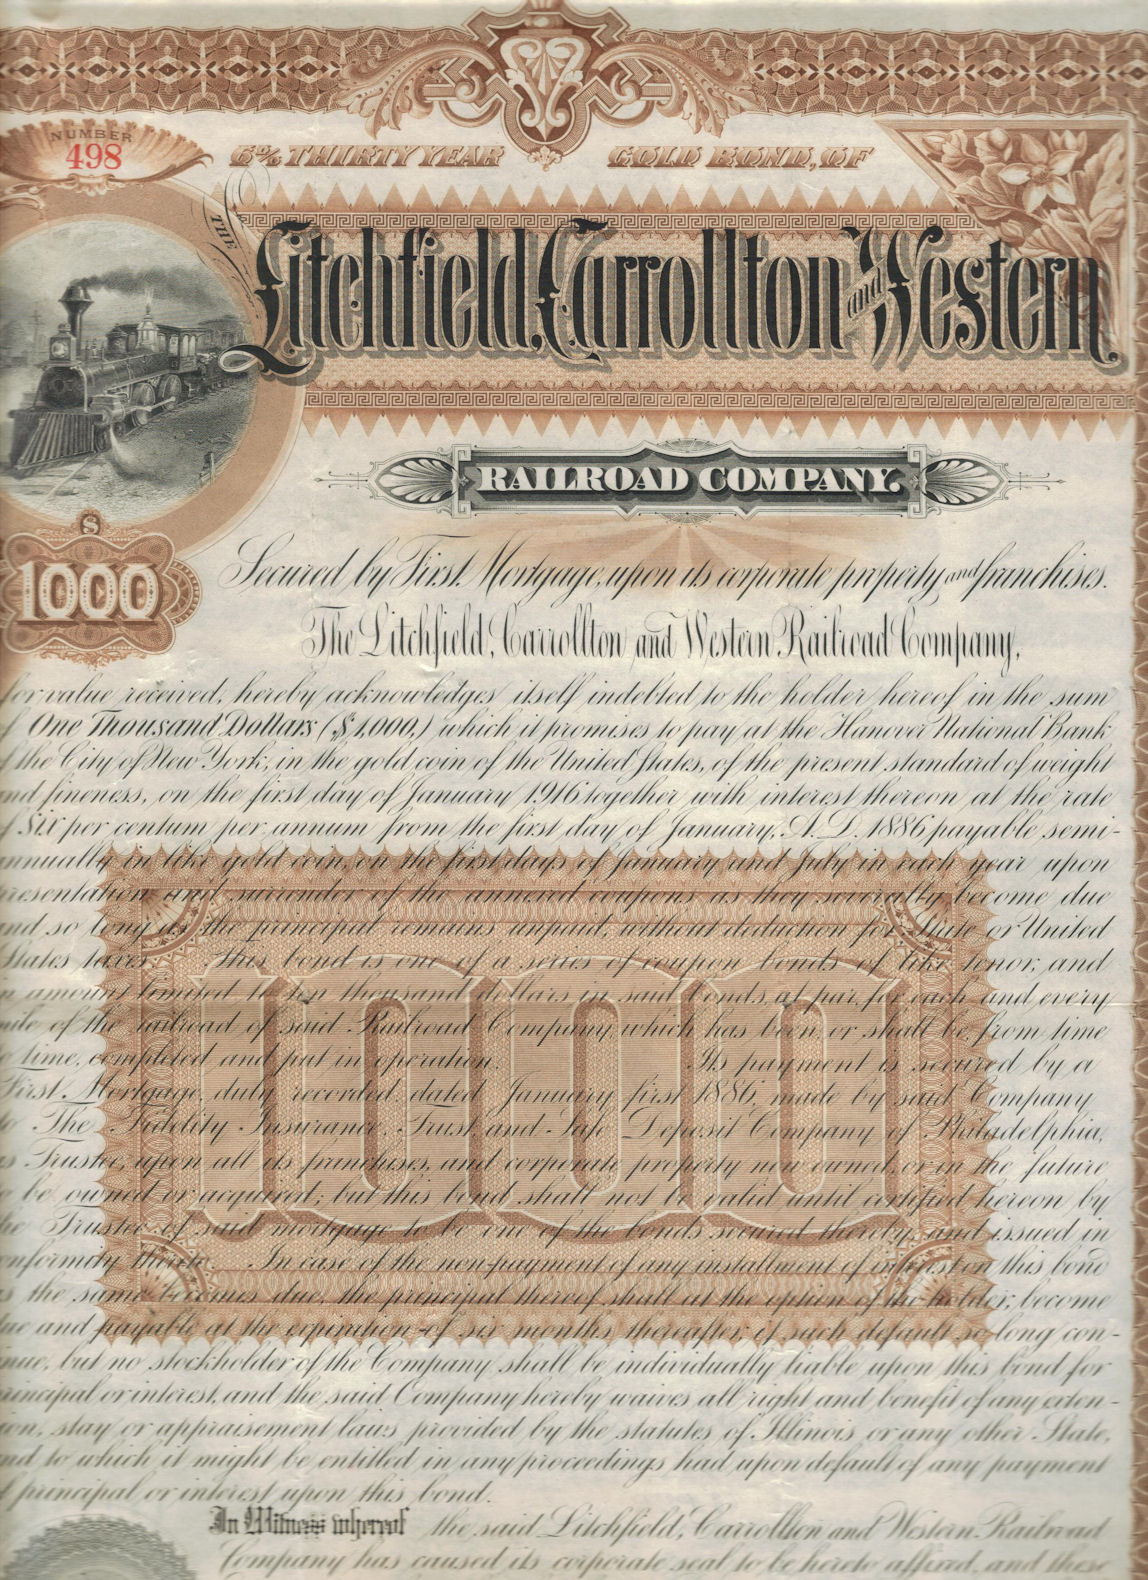 NUMBER
498
6% THIRTY YEAR GOLD BOND, OF
THE
Litchfield, Carrollton and Western
RAILROAD COMPANY.
$
1000
Secured by First Mortgage, upon its corporate property and franchises.
The Litchfield, Carrollton and Western Railroad Company,
for value received, hereby acknowledges itself indebted to the holder hereof in the sum
One Thousand Dollars ($1,000.) which it promises to pay at the Hanover National Bank
the City of New York, in the gold coin of the United States, of the present standard of weight
fineness, on the first day of January 1916 together with interest thereon at the rate
Six per centum per annum from the first day of January, A.D. 1886 payable semi-
nnually in like gold coin, on the first days of January and July in each year upon
resentation and surrender of the annexed coupons as they severally become due
nd so long as the principal remains unpaid, without deduction for State or United
States taxes. This bond is one of a series of coupon bonds of like tenor, and
n amount limited to ten thousand dollars in said bonds, at par, for each and every
mile of the railroad of said Railroad Company which has been or shall be, from time
time, completed and put in operation. Its payment is secured by a
First Mortgage, duly recorded, dated January first 1886, made by said Company
The Fidelity Insurance, Trust, and Safe Deposit Company of Philadelphia,
s Trustee, upon all its franchises, and corporate property now owned, or in the future
be owned or acquired; but this bond shall not be valid until certified hereon by
he Trustee of said mortgage to be one of the bonds secured thereby, and issued in
onformity thereto. In case of the non-payment of any installment of interest on this bond
s the same becomes due, the principal thereof shall at the option of the holder, become
ue and payable at the expiration of six months thereafter, if such default so long con-
nue, but no stockholder of the Company shall be individually liable upon this bond for
rincipal or interest, and the said Company hereby waives all right and benefit of any exten-
ion, stay or appraisement laws provided by the statutes of Illinois or any other State,
nd to which it might be entitled in any proceedings had upon default of any payment
f principal or interest upon this bond.
In Witness whereof the said Litchfield, Carrollton and Western Railroad
Company has caused its corporate seal to be hereto affixed, and these
1000